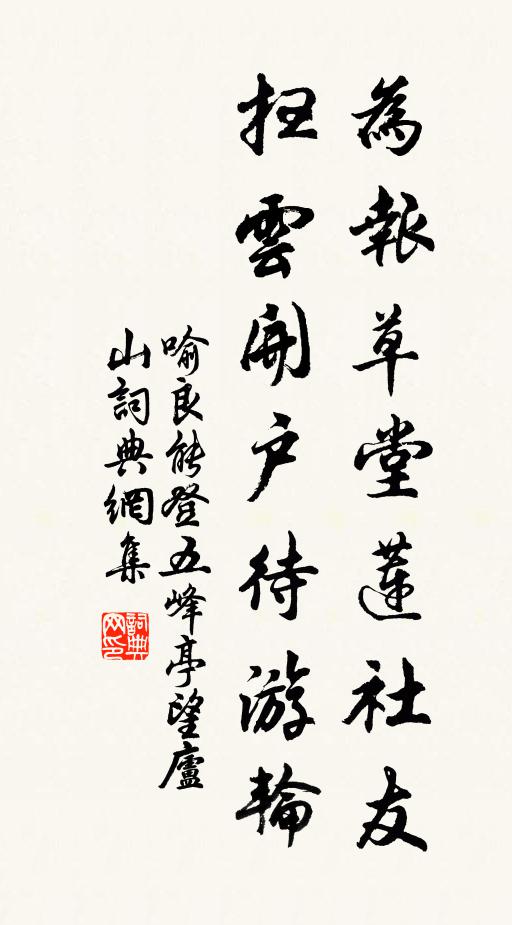 為報草堂蓮社友
雲開户待游輪
喻良能登五峰亭望廬
山詞典網集
詞典
网印